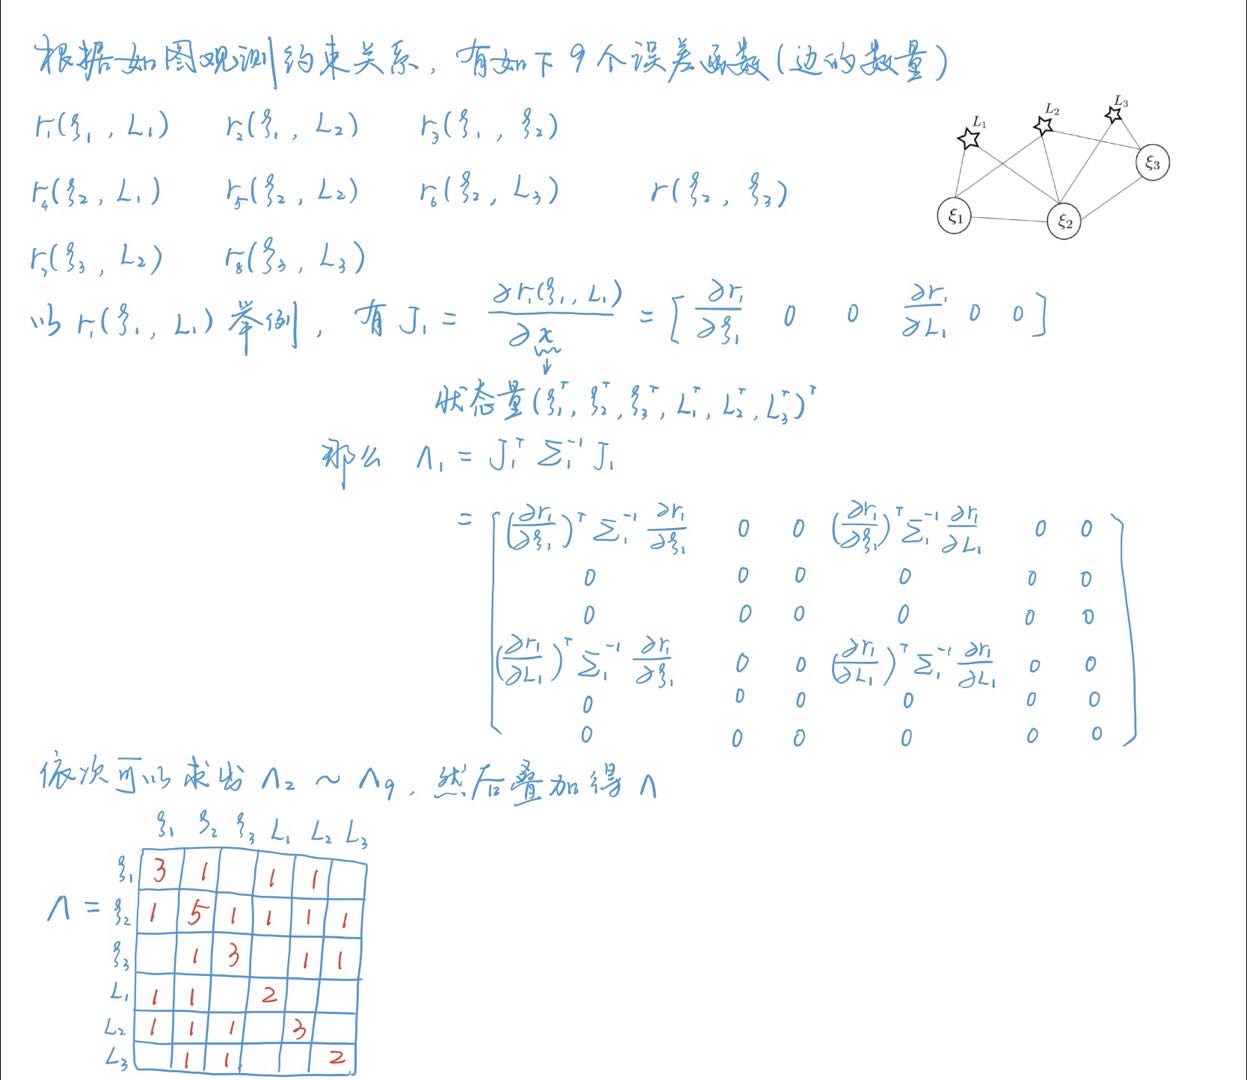 根据如图观测约束关系，有如下9个误差函数(边的数量)
r₁(ξ₁, L₁) r₂(ξ₁, L₂) r₃(ξ₁, ξ₂)
r₄(ξ₂, L₁) r₅(ξ₂, L₂) r₆(ξ₂, L₃) r(ξ₂, ξ₃)
r₇(ξ₃, L₂) r₈(ξ₃, L₃)
L₁ L₂ L₃
ξ₁ ξ₂ ξ₃
以 r₁(ξ₁, L₁) 举例，有 J₁ = ∂r₁(ξ₁, L₁)/∂x = [ ∂r₁/∂ξ₁ 0 0 ∂r₁/∂L₁ 0 0 ]
↓
状态量(ξ₁ᵀ, ξ₂ᵀ, ξ₃ᵀ, L₁ᵀ, L₂ᵀ, L₃ᵀ)ᵀ
那么 Λ₁ = J₁ᵀ Σ₁⁻¹ J₁
= [ (∂r₁/∂ξ₁)ᵀ Σ₁⁻¹ ∂r₁/∂ξ₁ 0 0 (∂r₁/∂ξ₁)ᵀ Σ₁⁻¹ ∂r₁/∂L₁ 0 0
0 0 0 0 0 0
0 0 0 0 0 0
(∂r₁/∂L₁)ᵀ Σ₁⁻¹ ∂r₁/∂ξ₁ 0 0 (∂r₁/∂L₁)ᵀ Σ₁⁻¹ ∂r₁/∂L₁ 0 0
0 0 0 0 0 0
0 0 0 0 0 0 ]
依次可以求出 Λ₂ ~ Λ₉，然后叠加得 Λ
ξ₁ ξ₂ ξ₃ L₁ L₂ L₃
ξ₁ 3 1 1 1
Λ = ξ₂ 1 5 1 1 1 1
ξ₃ 1 3 1 1
L₁ 1 1 2
L₂ 1 1 1 3
L₃ 1 1 2